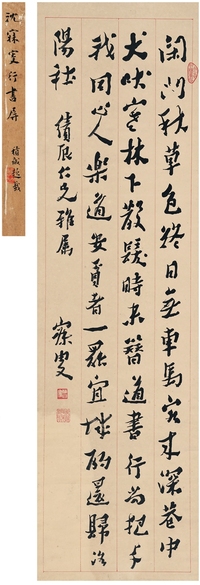 沈寐叟行書屏
閑門秋草色終日無車馬客來深巷中
犬吠寒林下散髮時未簪道書行尚把與
我同心人樂道安貧者一罷宜城酌還歸洛
陽社
仁兄雅屬
寐叟